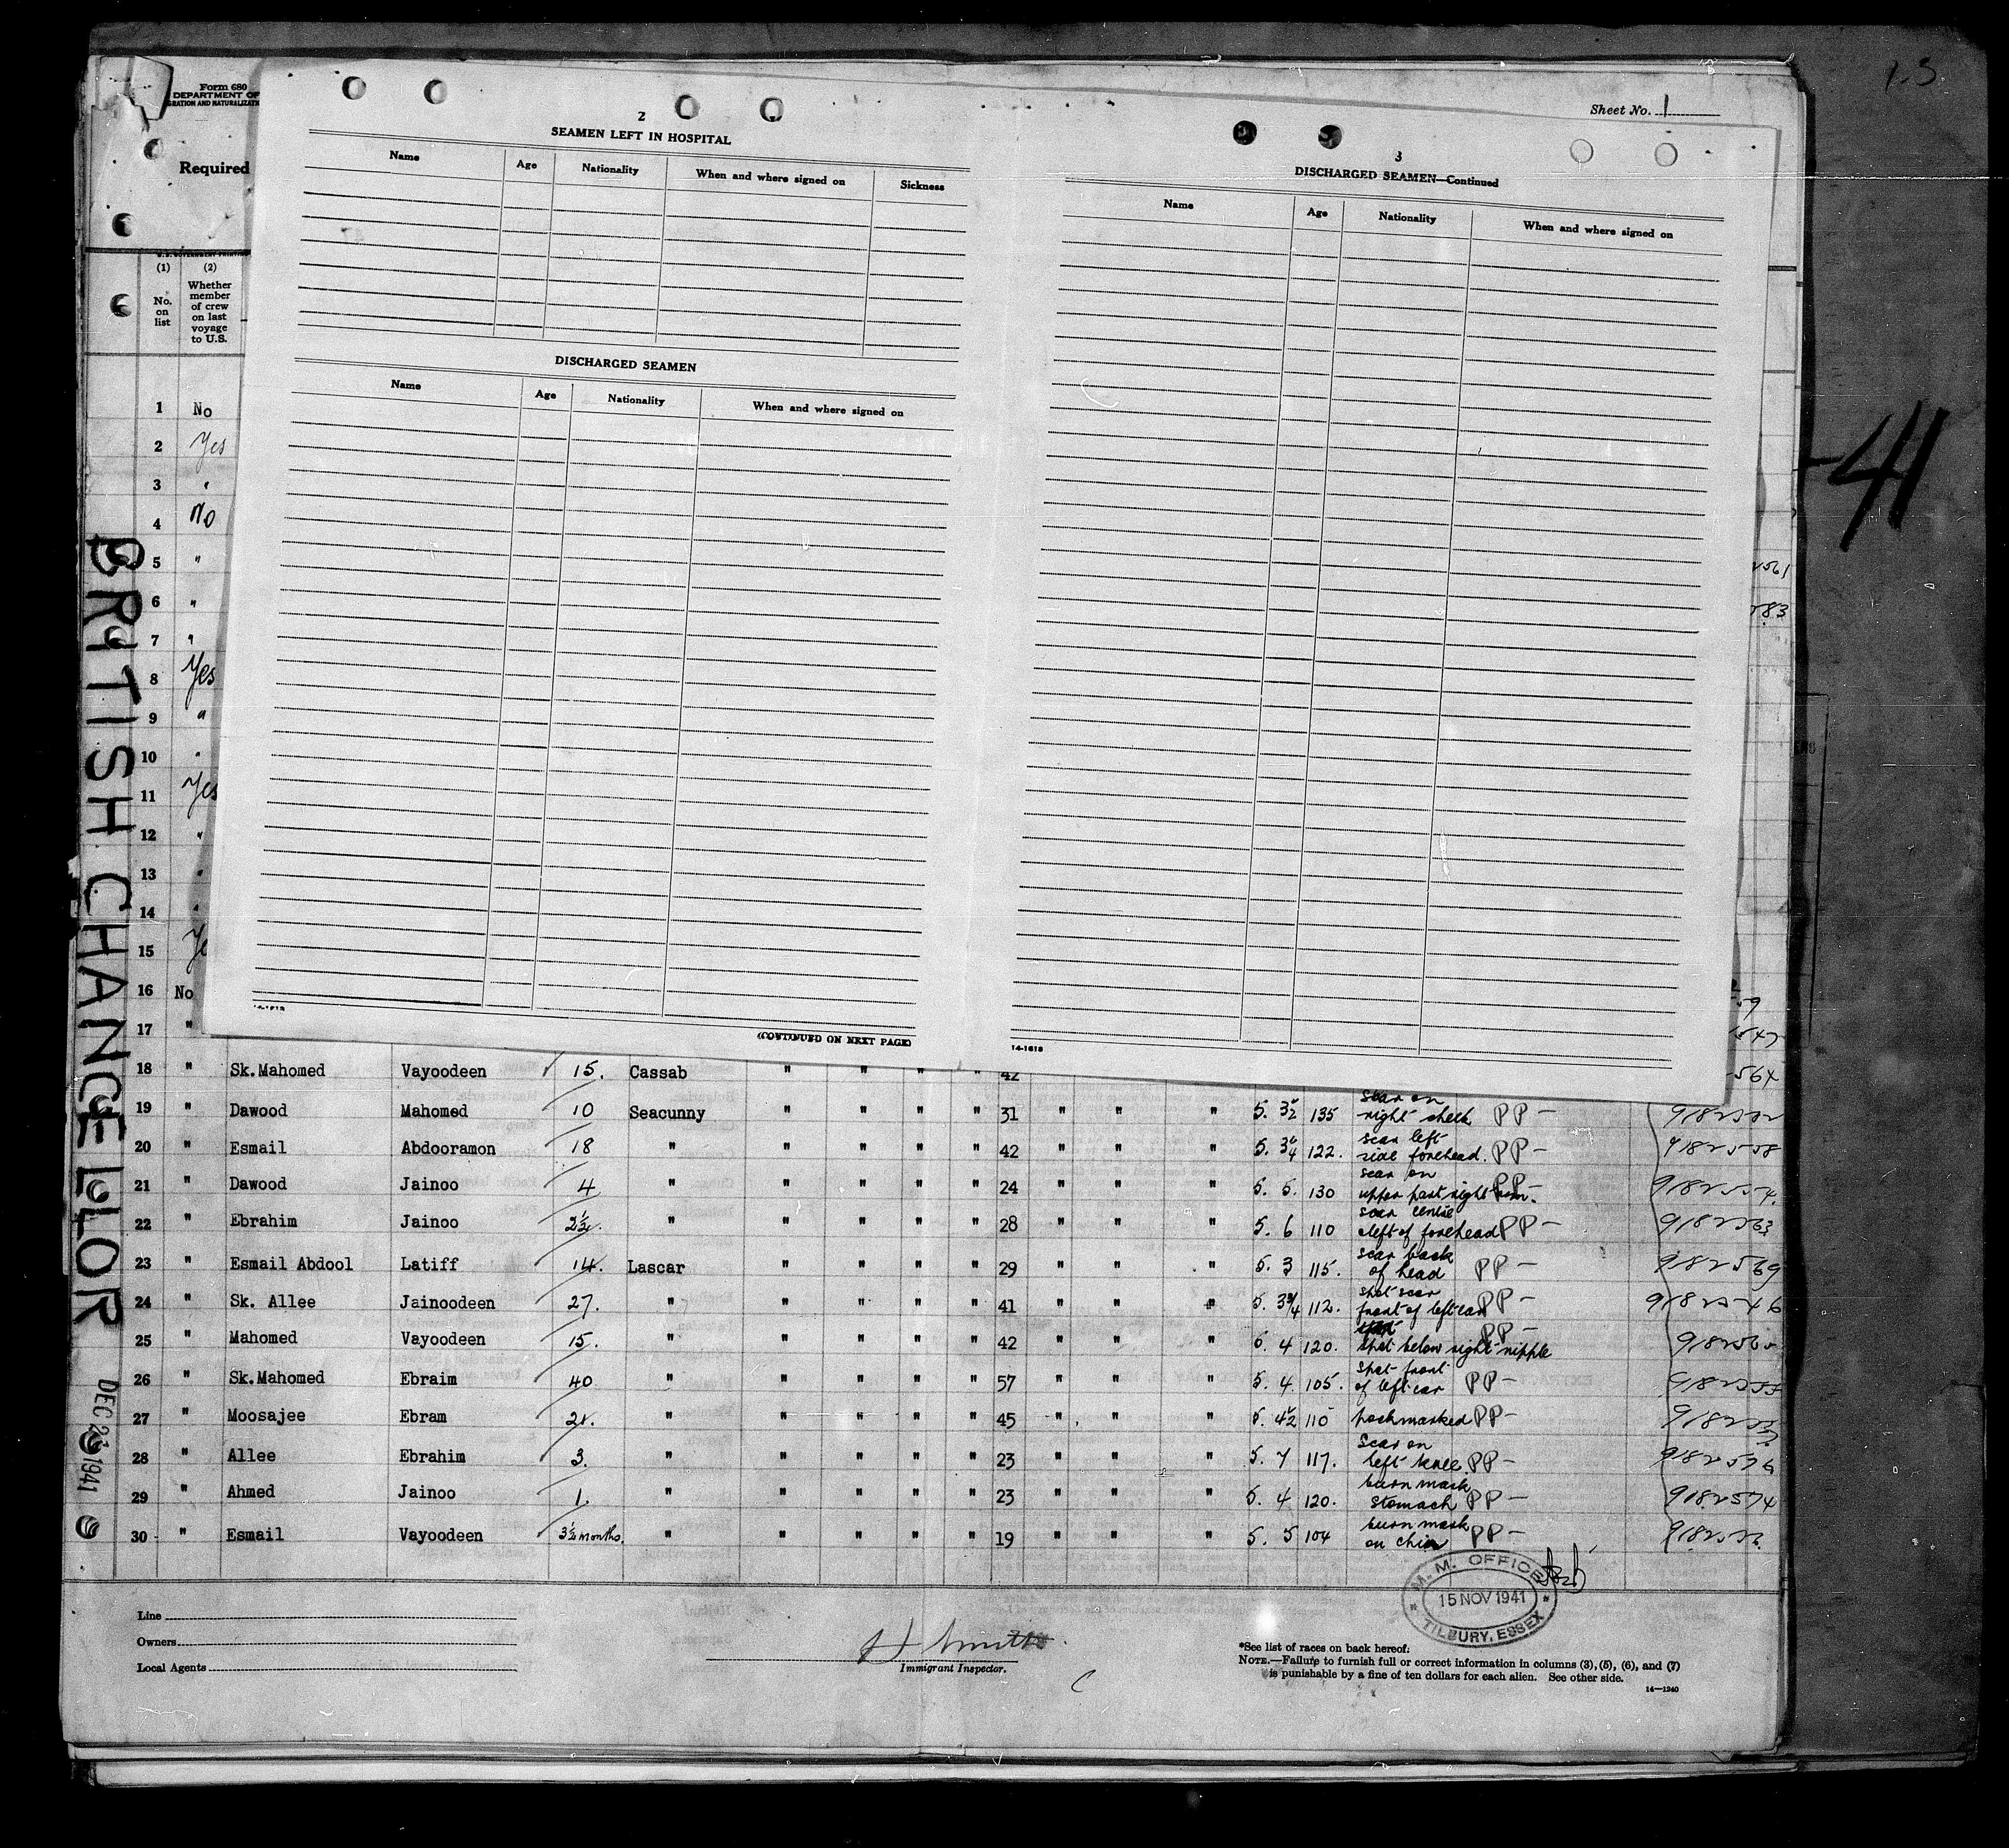 1-3
Form 680
DEPARTMENT OF
Sheet No. 1
Required
2
SEAMEN LEFT IN HOSPITAL
Name Age Nationality When and where signed on Sickness
DISCHARGED SEAMEN
Name Age Nationality When and where signed on
(CONTINUED ON NEXT PAGE)
3
DISCHARGED SEAMEN—Continued
Name Age Nationality When and where signed on
14-1618
-41
BRITISH CHANCELLOR
DEC 23 1941
(1) (2)
No. on list
Whether member of crew on last voyage to U.S.
1 No
2 Yes
3 "
4 No
5 "
6 "
7 "
8 Yes
9 "
10 "
11 Yes
12 "
13 "
14 "
15
16 No
17 "
18 " Sk.Mahomed Vayoodeen 15. Cassab " " " " 42
19 " Dawood Mahomed 10 Seacunny " " " " 31 " " " 5. 3½ 135 scar on right cheek PP - 9182502
20 " Esmail Abdooramon 18 " " " " " 42 " " " 5. 3¼ 122. scar left side forehead. PP - 9182558
21 " Dawood Jainoo 4 " " " " " 24 " " " 5. 5. 130 scar on upper part right arm. PP - 9182554.
22 " Ebrahim Jainoo 2½. " " " " " 28 " " " 5. 6 110 scar centre left of forehead PP - 9182563
23 " Esmail Abdool Latiff 14. Lascar " " " " 29 " " " 5. 3 115. scar back of head PP - 9182569
24 " Sk. Allee Jainoodeen 27. " " " " " 41 " " " 5. 3¾ 112. spot scar front of left ear PP - 9182546
25 " Mahomed Vayoodeen 15. " " " " " 42 " " " 5. 4 120. spot below right nipple PP -
26 " Sk.Mahomed Ebraim 40 " " " " " 57 " " " 5. 4. 105. spot front of left ear PP -
27 " Moosajee Ebram 21. " " " " " 45 " " " 5. 4½ 110 pockmarked PP -
28 " Allee Ebrahim 3. " " " " " 23 " " " 5. 7 117. scar on left knee PP - 9182576
29 " Ahmed Jainoo 1. " " " " " 23 " " " 5. 4 120. burn mark stomach PP - 9182574
30 " Esmail Vayoodeen 3½ months. " " " " " 19 " " " 5. 5 104 burn mark on chin PP -
M. M. OFFICE
15 NOV 1941
TILBURY, ESSEX
Line
Owners
Local Agents
H Smith
Immigrant Inspector.
*See list of races on back hereof.
NOTE.—Failure to furnish full or correct information in columns (3), (5), (6), and (7)
is punishable by a fine of ten dollars for each alien. See other side.
14—1240